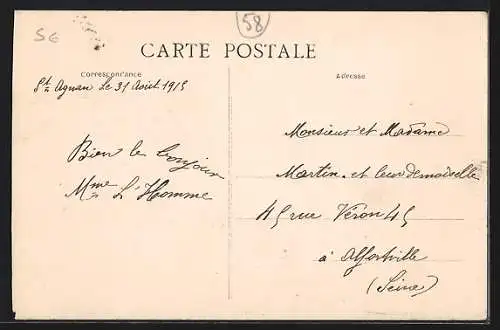 56
58
CARTE POSTALE
Correspondance
Adresse
St Agnan Le 31 Août 1915
Bien le bonjour
Mme L'Homme
Monsieur et Madame
Martin et leur demoiselle
45 rue Véron 45
à Alfortville
(Seine)